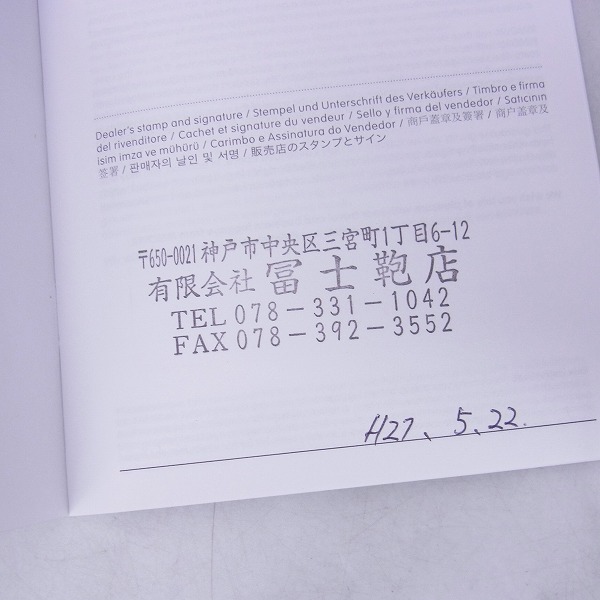 Dealer's stamp and signature / Stempel und Unterschrift des Verkäufers / Timbro e firma
del rivenditore / Cachet et signature du vendeur / Sello y firma del vendedor / Satıcının
isim imza ve mühürü / Carimbo e Assinatura do Vendedor / 商戶蓋章及簽署 / 商户盖章及
签署 / 판매자의 날인 및 서명 / 販売店のスタンプとサイン
〒650-0021 神戸市中央区三宮町1丁目6-12
有限会社 冨士鞄店
TEL 078-331-1042
FAX 078-392-3552
H27、5、22.